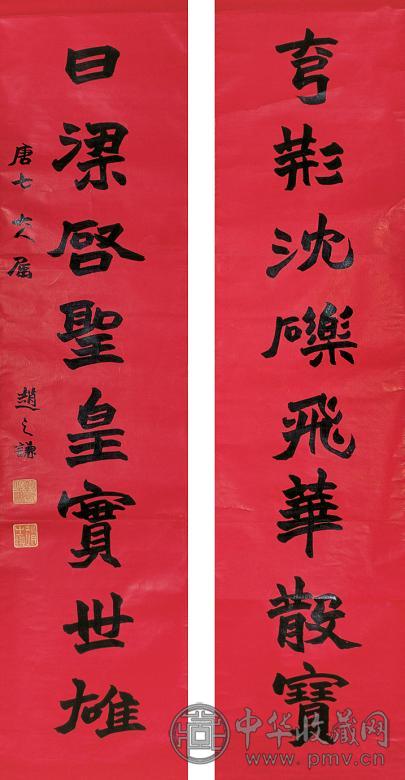 沈礫飛華散寶
曰梁啓聖皇實世雄
唐七大人属 趙之謙
中华收藏网
www.pmv.cn